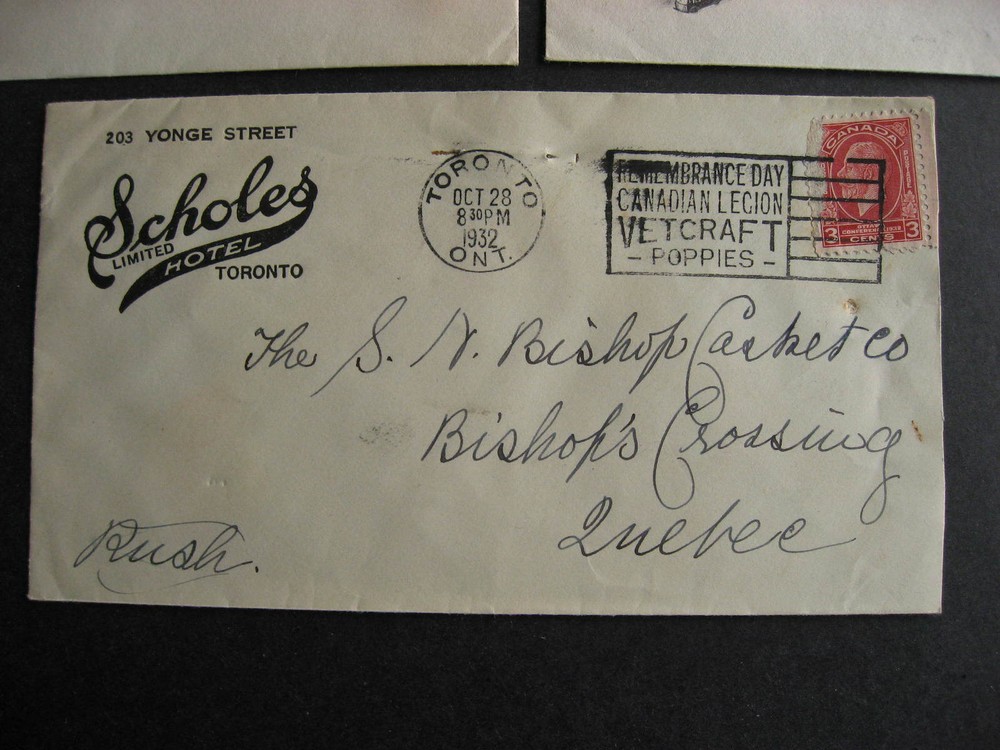 203 YONGE STREET
Scholes
LIMITED HOTEL
TORONTO
TORONTO
OCT 28
8 30 PM
1932
ONT.
REMEMBRANCE DAY
CANADIAN LEGION
VETCRAFT
- POPPIES -
CANADA
POSTAGE
OTTAWA
CONFERENCE 1932
3 CENTS 3
The S. N. Bishop Casket Co
Bishop's Crossing
Quebec
Rush.